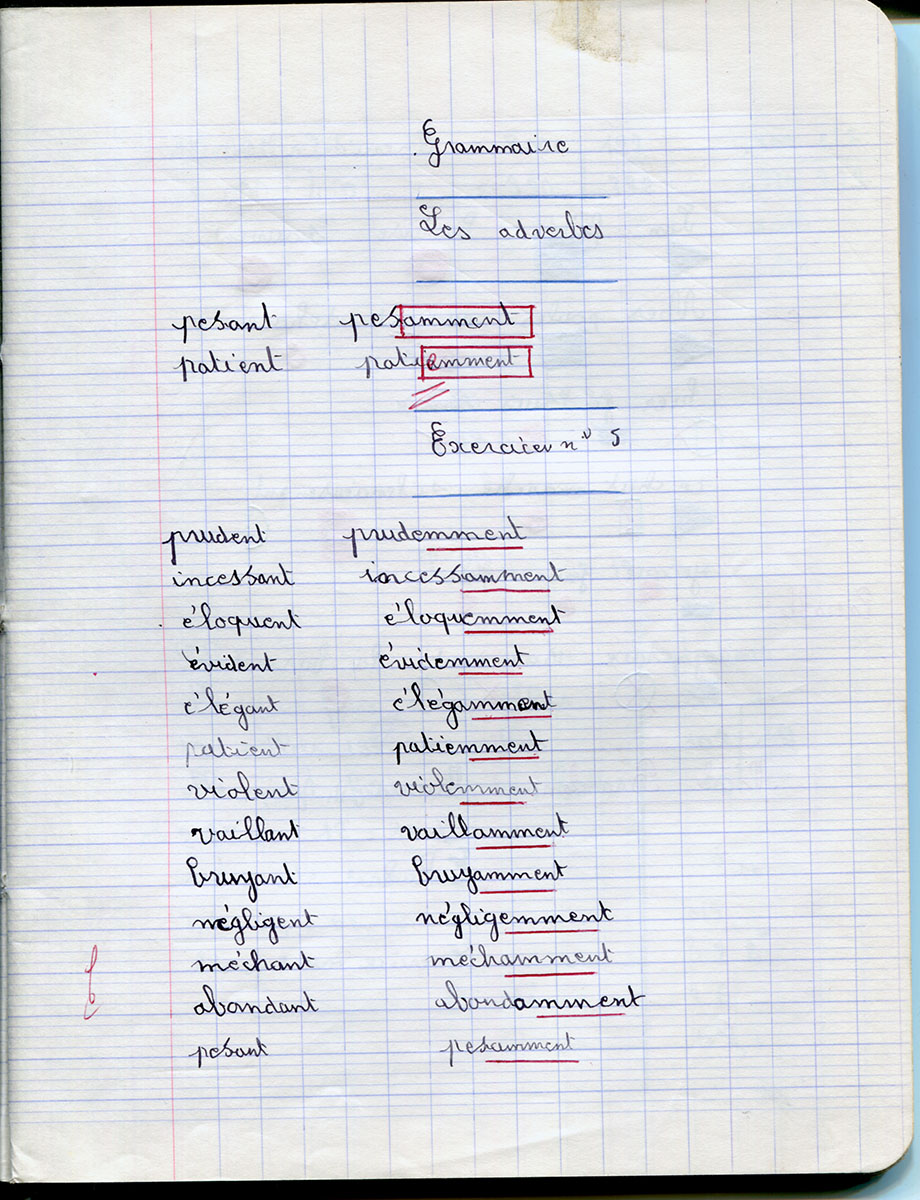 Grammaire
Les adverbes
pesant pesamment
patient patiemment
Exercice n° 5
prudent prudemment
incessant incessamment
éloquent éloquemment
évident évidemment
élégant élégamment
patient patiemment
violent violemment
vaillant vaillamment
bruyant bruyamment
négligent négligemment
méchant méchamment
abondant abondamment
pesant pesamment